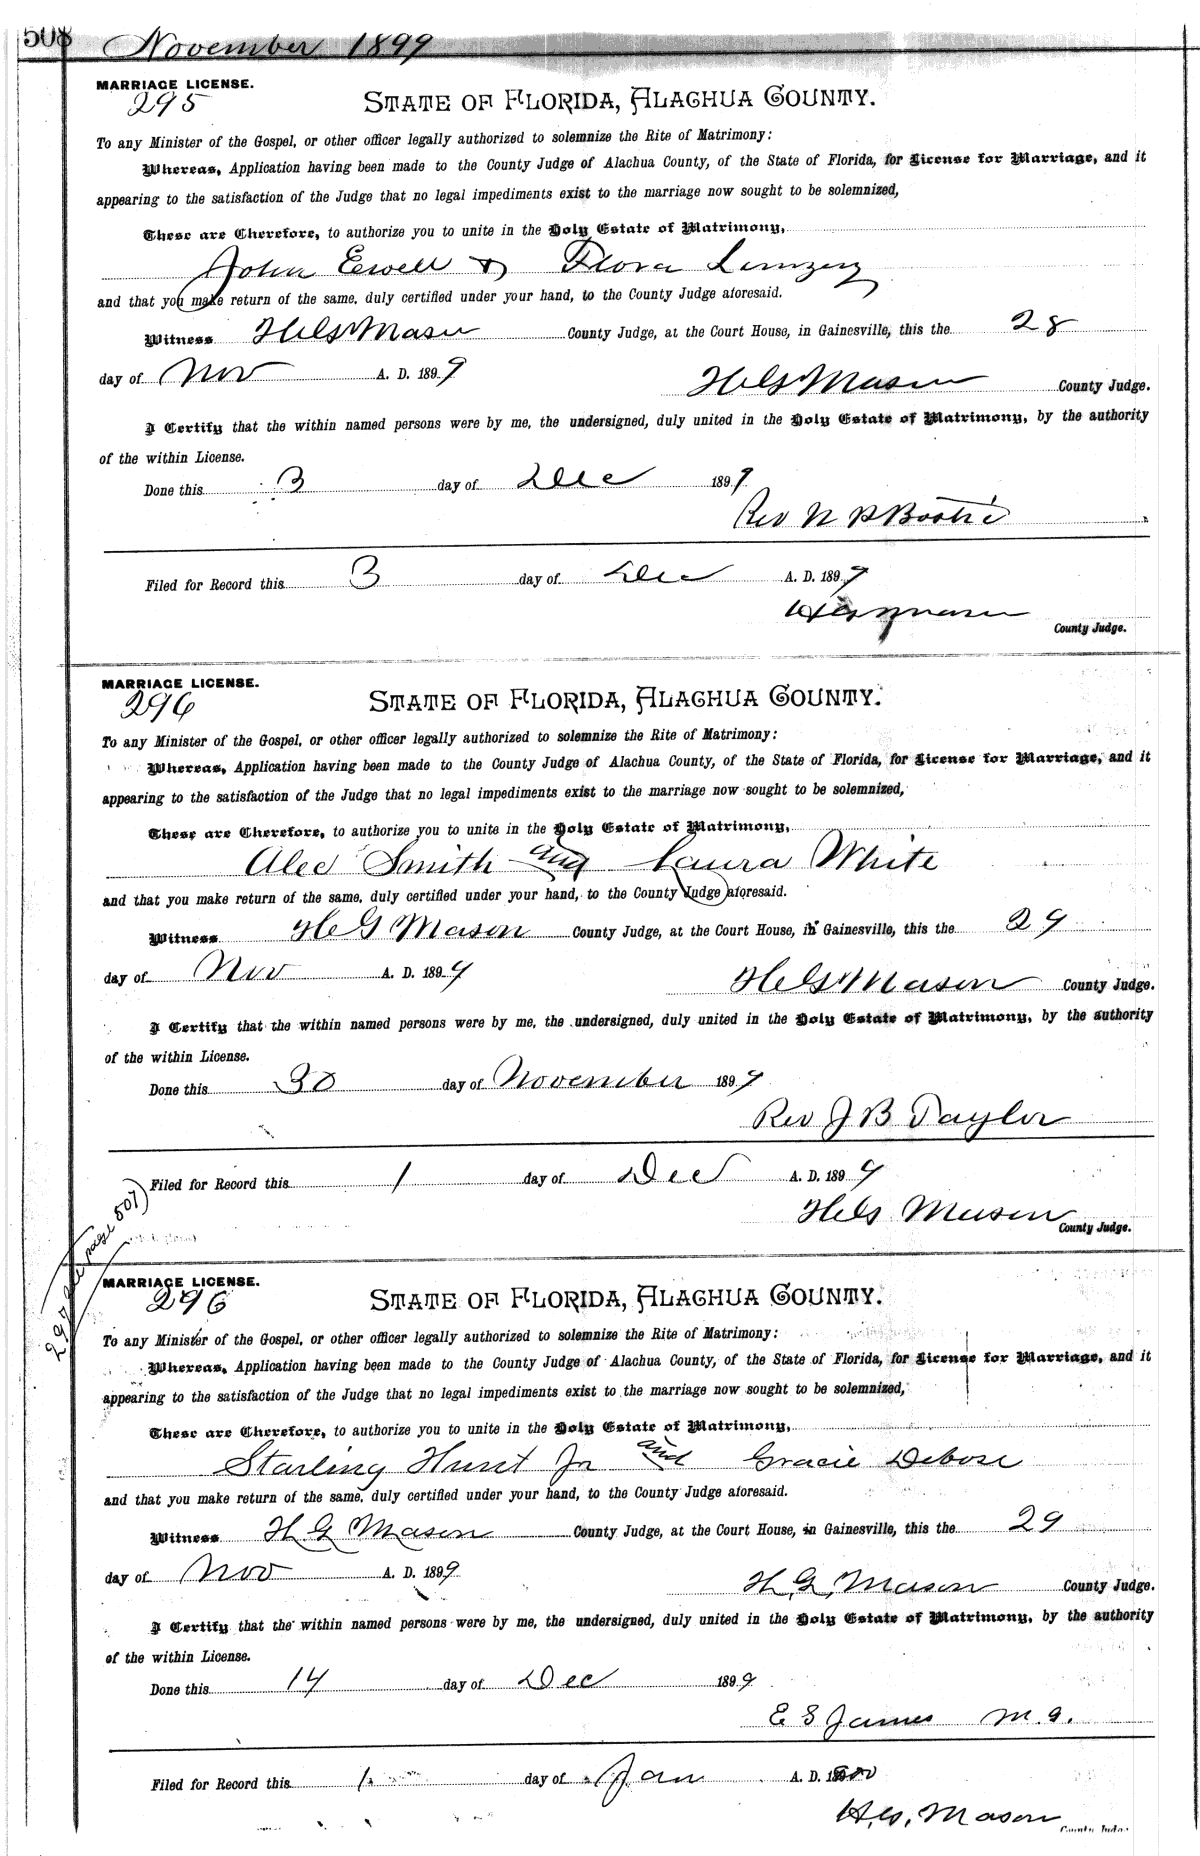 508 November 1899
MARRIAGE LICENSE.
295
STATE OF FLORIDA, ALACHUA COUNTY.
To any Minister of the Gospel, or other officer legally authorized to solemnize the Rite of Matrimony:
Whereas, Application having been made to the County Judge of Alachua County, of the State of Florida, for License for Marriage, and it
appearing to the satisfaction of the Judge that no legal impediments exist to the marriage now sought to be solemnized,
These are Therefore, to authorize you to unite in the Holy Estate of Matrimony,
John Ewell & Flora
and that you make return of the same, duly certified under your hand, to the County Judge aforesaid.
Witness H G Mason County Judge, at the Court House, in Gainesville, this the 28
day of Nov A. D. 1899
H G Mason County Judge.
I Certify that the within named persons were by me, the undersigned, duly united in the Holy Estate of Matrimony, by the authority
of the within License.
Done this 3 day of Dec 1899
Rev N
Filed for Record this 3 day of Dec A. D. 1899
H G Mason
County Judge.
MARRIAGE LICENSE.
296
STATE OF FLORIDA, ALACHUA COUNTY.
To any Minister of the Gospel, or other officer legally authorized to solemnize the Rite of Matrimony:
Whereas, Application having been made to the County Judge of Alachua County, of the State of Florida, for License for Marriage, and it
appearing to the satisfaction of the Judge that no legal impediments exist to the marriage now sought to be solemnized,
These are Therefore, to authorize you to unite in the Holy Estate of Matrimony,
Alec Smith and Laura White
and that you make return of the same, duly certified under your hand, to the County Judge aforesaid.
Witness H G Mason County Judge, at the Court House, in Gainesville, this the 29
day of Nov A. D. 1899
H G Mason County Judge.
I Certify that the within named persons were by me, the undersigned, duly united in the Holy Estate of Matrimony, by the authority
of the within License.
Done this 30 day of November 1899
Rev J B Taylor
Filed for Record this 1 day of Dec A. D. 1899
H G Mason
County Judge.
page 507)
MARRIAGE LICENSE.
296
STATE OF FLORIDA, ALACHUA COUNTY.
To any Minister of the Gospel, or other officer legally authorized to solemnize the Rite of Matrimony:
Whereas, Application having been made to the County Judge of Alachua County, of the State of Florida, for License for Marriage, and it
appearing to the satisfaction of the Judge that no legal impediments exist to the marriage now sought to be solemnized,
These are Therefore, to authorize you to unite in the Holy Estate of Matrimony,
Starling Hunt Jr and Gracie Debose
and that you make return of the same, duly certified under your hand, to the County Judge aforesaid.
Witness H G Mason County Judge, at the Court House, in Gainesville, this the 29
day of Nov A. D. 1899
H. G. Mason County Judge.
I Certify that the within named persons were by me, the undersigned, duly united in the Holy Estate of Matrimony, by the authority
of the within License.
Done this 14 day of Dec 1899
E S James M. G.
Filed for Record this 1 day of Jan A. D. 1900
H. G. Mason
County Judge.